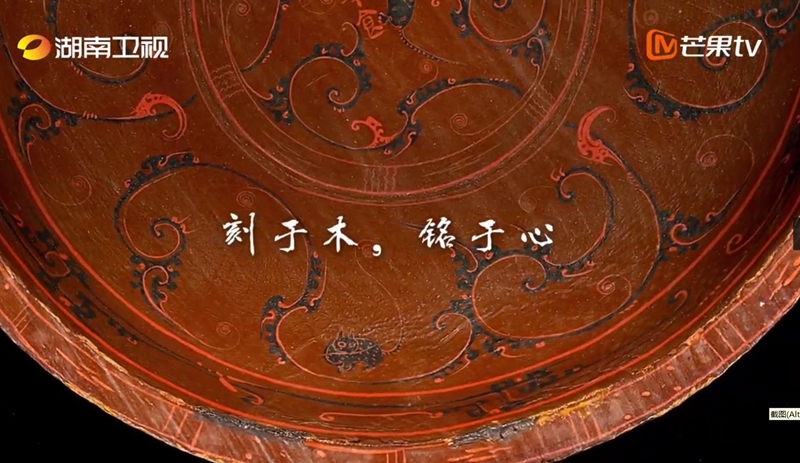 湖南卫视
芒果tv
刻于木，铭于心
截图(Alt